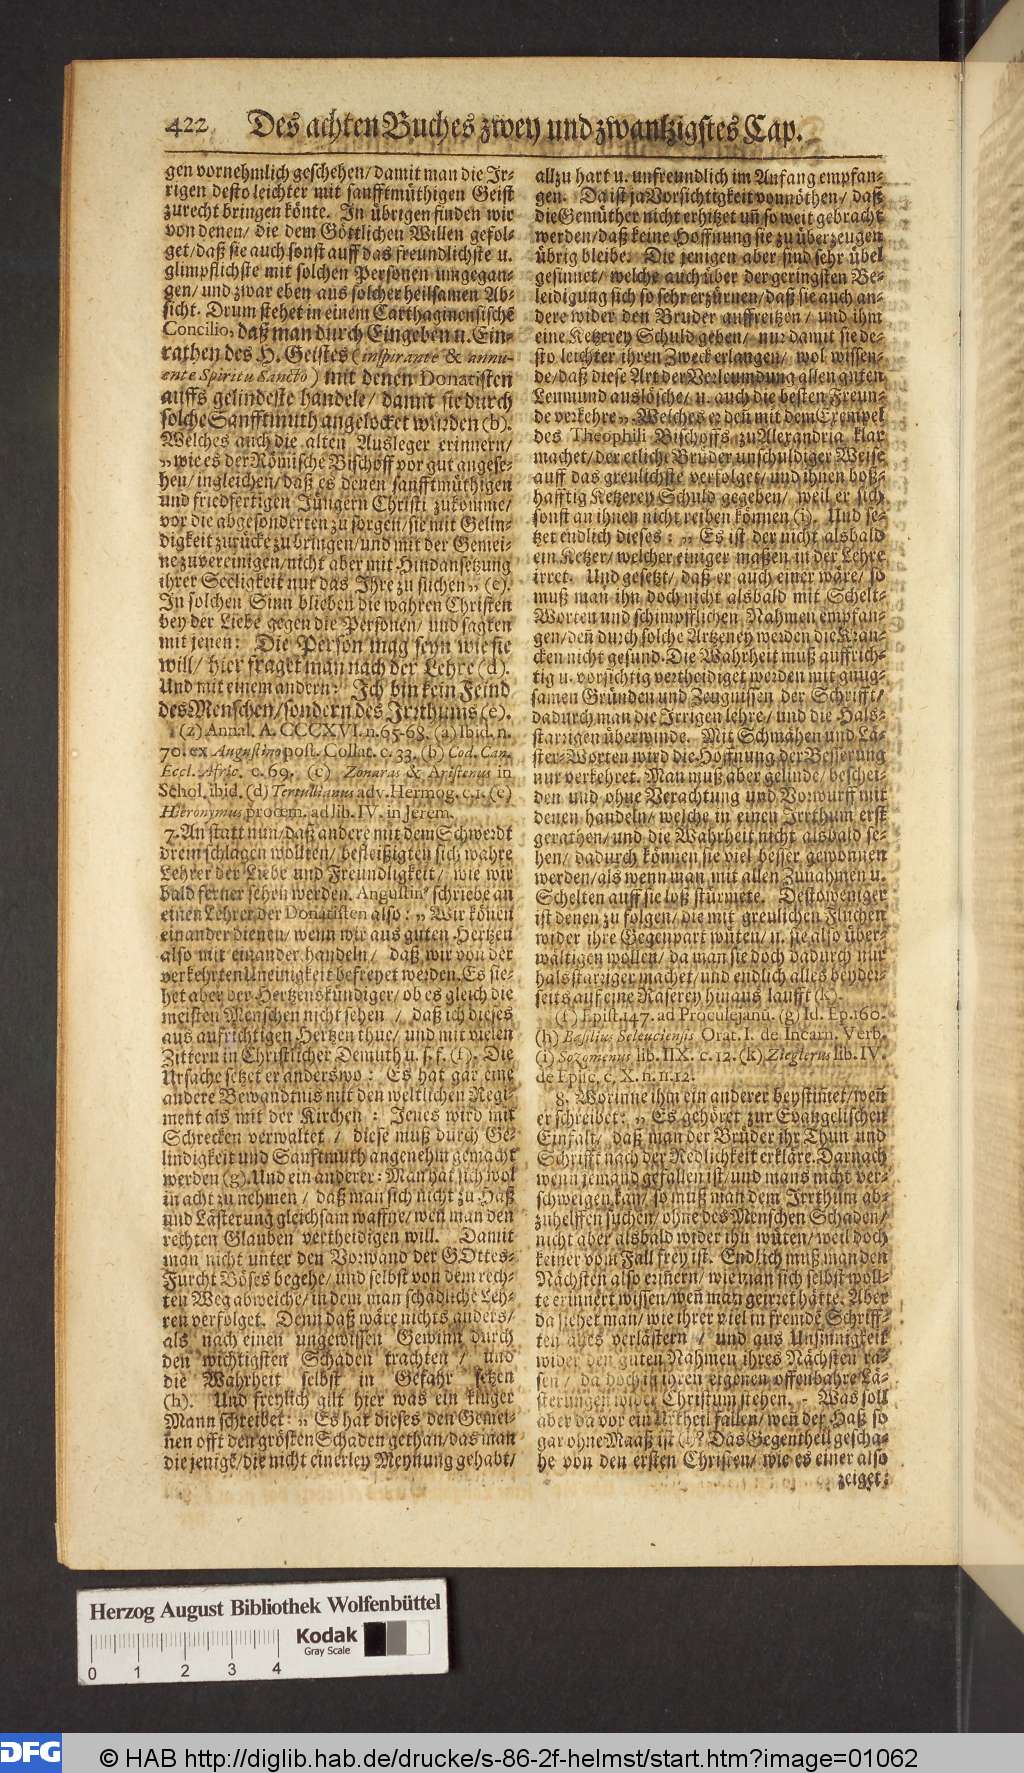 422 Des achten Buches zwey und zwantzigstes Cap.
gen vornehmlich geschehen/ damit man die Ir-
rigen desto leichter mit sanfftmüthigen Geist
zurecht bringen könte. In übrigen finden wir
von denen/ die dem Göttlichen Willen gefol-
get/ daß sie auch sonst auff das freundlichste u.
glimpflichste mit solchen Personen umgegan-
gen/ und zwar eben aus solcher heilsamen Ab-
sicht. Drum stehet in einem Carthaginensische
Concilio, daß man durch Eingeben u. Ein-
rathen des H. Geistes (inspirante & annu-
ente Spiritu Sancto) mit denen Donatisten
auffs gelindeste handele/ damit sie durch
solche Sanfftmuth angelocket würden (b).
Welches auch die alten Ausleger erinnern/
„wie es der Römische Bischoff vor gut angese-
hen/ ingleichen/ daß es denen sanfftmüthigen
und friedfertigen Jüngern Christi zukomme/
vor die abgesonderten zu sorgen/ sie mit Gelin-
digkeit zurücke zu bringen/ und mit der Gemei-
ne zu vereinigen/ nicht aber mit Hindansetzung
ihrer Seeligkeit nur das Ihre zu suchen„ (c).
In solchen Sinn blieben die wahren Christen
bey der Liebe gegen die Personen/ und sagten
mit jenen: Die Person mag seyn wie sie
will/ hier fraget man nach der Lehre (d).
Und mit einem andern: Ich bin kein Feind
des Menschen/ sondern des Irrthums (e).
(z) Annal. A. CCCXVI. n. 65-68. (a) Ibid. n.
70. ex Augustino post. Collat. c. 33. (b) Cod. Can.
Eccl. Afric. c. 69. (c) Zonaras & Aristenus in
Schol. ibid. (d) Tertullianus adv. Hermog. c. 1. (e)
Hieronymus proœm. ad lib. IV. in Jerem.
7. An statt nun/ daß andere mit dem Schwerdt
drein schlagen wollten/ befleißigten sich wahre
Lehrer der Liebe und Freundligkeit/ wie wir
bald ferner sehen werden. Augustin⁹ schriebe an
einen Lehrer der Donatisten also: „Wir könen
einander dienen/ wenn wir aus guten Hertzen
also mit einander handeln/ daß wir von der
verkehrten Uneinigkeit befreyet werden. Es sie-
het aber der Hertzenskündiger/ ob es gleich die
meisten Menschen nicht sehen/ daß ich dieses
aus aufrichtigen Hertzen thue/ und mit vielen
Zittern in Christlicher Demuth u. s. f. (f). Die
Ursache setzet er anderswo: Es hat gar eine
andere Bewandtnis mit den weltlichen Regi-
ment als mit der Kirchen: Jenes wird mit
Schrecken verwaltet/ diese muß durch Ge-
lindigkeit und Sanftmuth angenehm gemacht
werden (g). Und ein anderer: Man hat sich wol
in acht zu nehmen/ daß man sich nicht zu Haß
und Lästerung gleichsam waffne/ weñ man den
rechten Glauben vertheidigen will. Damit
man nicht unter den Vorwand der GOttes-
Furcht Böses begehe/ und selbst von dem rech-
ten Weg abweiche/ in dem man schädliche Leh-
ren verfolget. Denn daß wäre nichts anders/
als nach einen ungewissen Gewinn durch
den wichtigsten Schaden trachten/ und
die Wahrheit selbst in Gefahr setzen
(h). Und freylich gilt hier was ein kluger
Mann schreibet: „Es hat dieses den Gemei-
nen offt den grösten Schaden gethan/ das man
die jenige/ die nicht einerley Meynung gehabt/
allzu hart u. unfreundlich im Anfang empfan-
gen. Da ist ja Vorsichtigkeit vonnöthen/ daß
die Gemüther nicht erhitzet uñ so weit gebracht
werden/ daß keine Hoffnung sie zu überzeugen
übrig bleibe. Die jenigen aber sind sehr übel
gesinnet/ welche auch über der geringsten Be-
leidigung sich so sehr erzürnen/ daß sie auch an-
dere wider den Bruder auffreitzen/ und ihm
eine Ketzerey Schuld geben/ nur damit sie de-
sto leichter ihren Zweck erlangen/ wol wissen-
de/ daß diese Art der Verleumdung allen guten
Leumund auslösche/ u. auch die besten Freun-
de verkehre„. Welches er deñ mit dem Exempel
des Theophili Bischoffs zu Alexandria klar
machet/ der etliche Brüder unschuldiger Weise
auff das greulichste verfolget/ und ihnen boß-
hafftig Ketzerey Schuld gegeben/ weil er sich
sonst an ihnen nicht reiben können (i). Und se-
tzet endlich dieses: „Es ist der nicht alsbald
ein Ketzer/ welcher einiger maßen in der Lehre
irret. Und gesetzt/ daß er auch einer wäre/ so
muß man ihn doch nicht alsbald mit Schelt-
Worten und schimpflichen Nahmen empfan-
gen/ deñ durch solche Artzeney werden die Kran-
cken nicht gesund. Die Wahrheit muß auffrich-
tig u. vorsichtig vertheidiget werden mit gnug-
samen Gründen und Zeugnissen der Schrifft/
dadurch man die Irrigen lehre/ und die Hals-
starrigen überwinde. Mit Schmähen und Lä-
ster-Worten wird die Hoffnung der Besserung
nur verkehret. Man muß aber gelinde/ beschei-
den und ohne Verachtung und Vorwurff mit
denen handeln/ welche in einen Irrthum erst
gerathen/ und die Wahrheit nicht alsbald se-
hen/ dadurch können sie viel besser gewonnen
werden/ als wenn man mit allen Zunahmen u.
Schelten auff sie loß stürmete. Destoweniger
ist denen zu folgen/ die mit greulichen Fluchen
wider ihre Gegenpart wüten/ u. sie also über-
wältigen wollen/ da man sie doch dadurch nur
halsstarriger machet/ und endlich alles beyder-
seits auf eine Raserey hinaus laufft (k).
(f) Epist. 147. ad Proculejanū. (g) Id. Ep. 160.
(h) Basilius Seleuciensis Orat. I. de Incarn. Verb.
(i) Sozomenus lib. IIX. c. 12. (k) Zieglerus lib. IV.
de Episc. c. X. n. 11. 12.
8. Worinne ihm ein anderer beystim̃et/ weñ
er schreibet: „Es gehöret zur Evangelischen
Einfalt/ daß man der Brüder ihr Thun und
Schrifft nach der Redlichkeit erkläre. Darnach
wenn jemand gefallen ist/ und mans nicht ver-
schweigen kan/ so muß man dem Irrthum ab-
zuhelffen suchen/ ohne des Menschen Schaden/
nicht aber alsbald wider ihn wüten/ weil doch
keiner vom Fall frey ist. Endlich muß man den
Nächsten also eriñern/ wie man sich selbst woll-
te erinnert wissen/ weñ man geirret hätte. Aber
da siehet man/ wie ihrer viel in fremde Schriff-
ten alles verlästern/ und aus Unsinnigkeit
wider den guten Nahmen ihres Nächsten ra-
sen/ da doch in ihren eigenen offenbahre Lä-
sterungen wider Christum stehen. Was soll
aber da vor ein Urtheil fallen/ weñ der Haß so
gar ohne Maaß ist (l)? Das Gegentheil gescha-
he von den ersten Christen/ wie es einer also
zeiget:
Herzog August Bibliothek Wolfenbüttel
Kodak
Gray Scale
0 1 2 3 4
DFG © HAB http://diglib.hab.de/drucke/s-86-2f-helmst/start.htm?image=01062